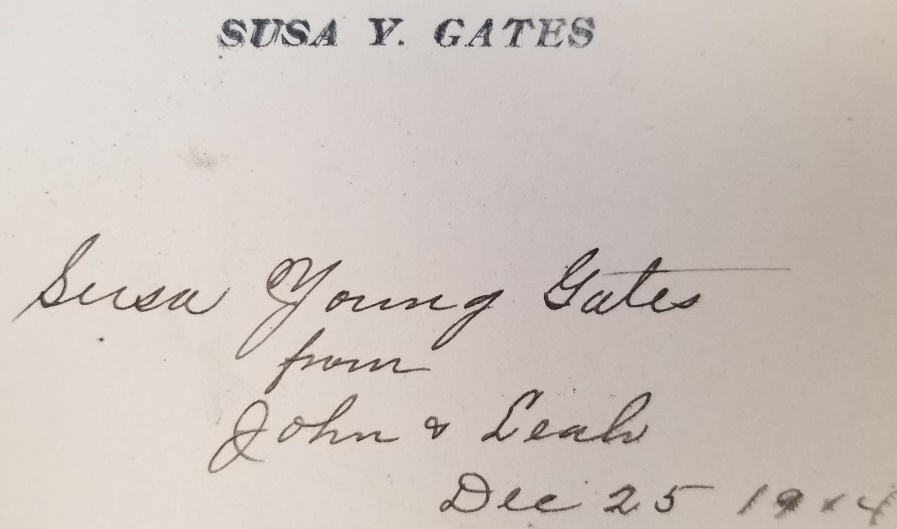 SUSA Y. GATES
Susa Young Gates
from
John & Leah
Dec 25